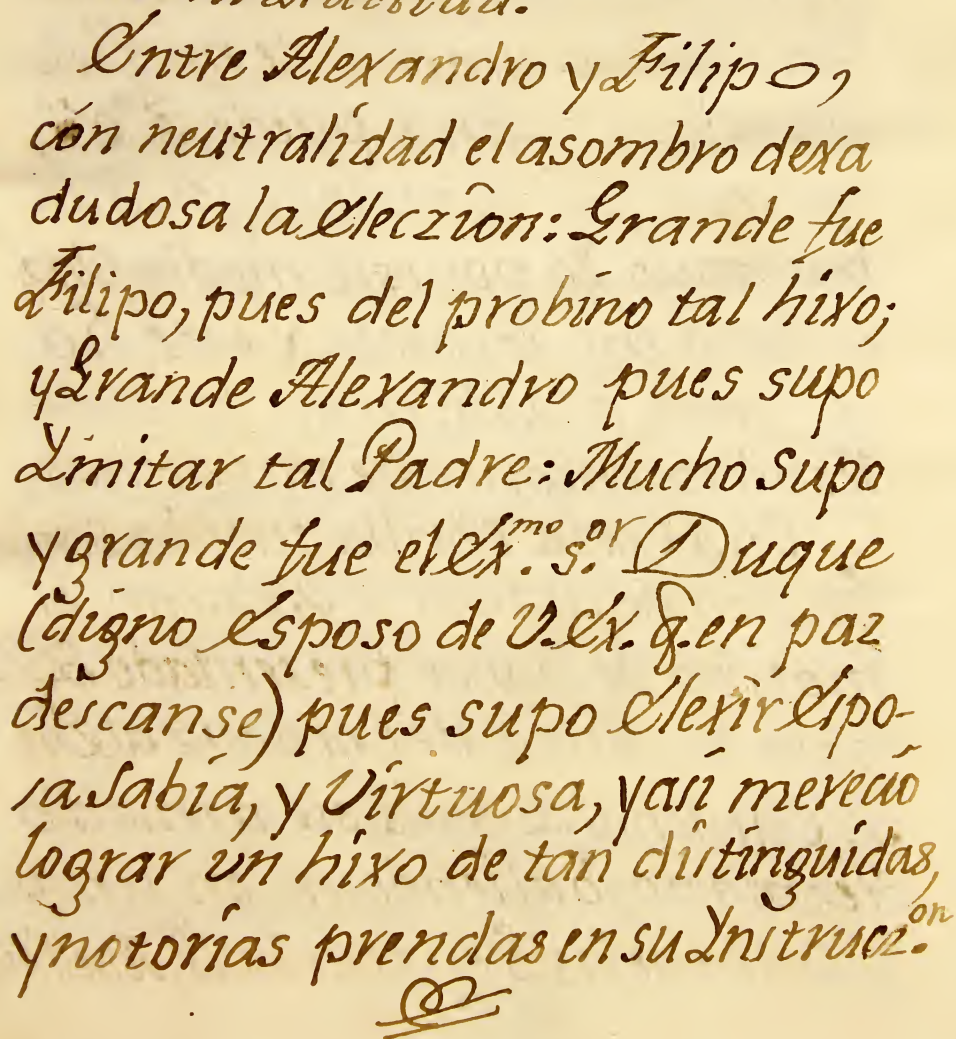 Entre Alexandro y Filipo,
cón neutralidad el asombro dexa
dudosa la Eleczîon: Grande fue
Filipo, pues del probino tal hixo;
y Grande Alexandro pues supo
Ymitar tal Padre: Mucho Supo
y grande fue el Ex.mo s.or Duque
(digno Esposo de V. Ex. q. en paz
descanse) pues supo Elexir Espo-
sa Sabia, y Virtuosa, y asi merecio
lograr un hixo de tan distinguidas,
y notorias prendas en su Ynstrucz.on